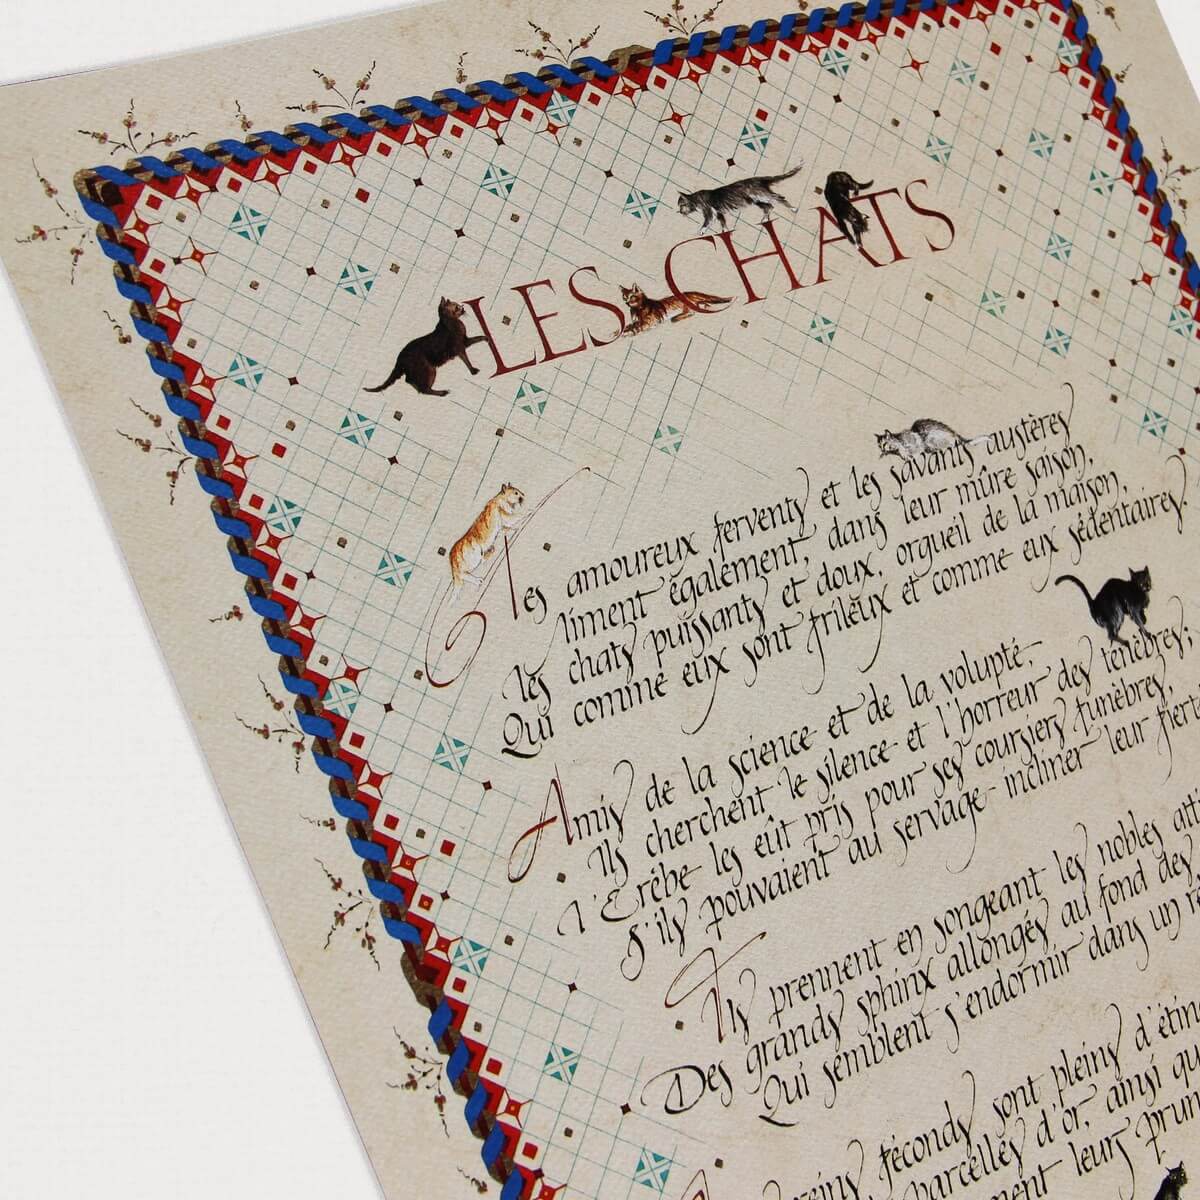 LES CHATS
Les amoureux fervents et les savants austères
Aiment également, dans leur mûre saison,
Les chats puissants et doux, orgueil de la maison,
Qui comme eux sont frileux et comme eux sédentaires.
Amis de la science et de la volupté,
Ils cherchent le silence et l'horreur des ténèbres;
L'Erèbe les eût pris pour ses coursiers funèbres,
S'ils pouvaient au servage incliner leur fiert
Ils prennent en songeant les nobles att
Des grands sphinx allongés au fond des
Qui semblent s'endormir dans un r
reins féconds sont pleins d'étin
parcelles d'or, ainsi qu
ment leurs prun